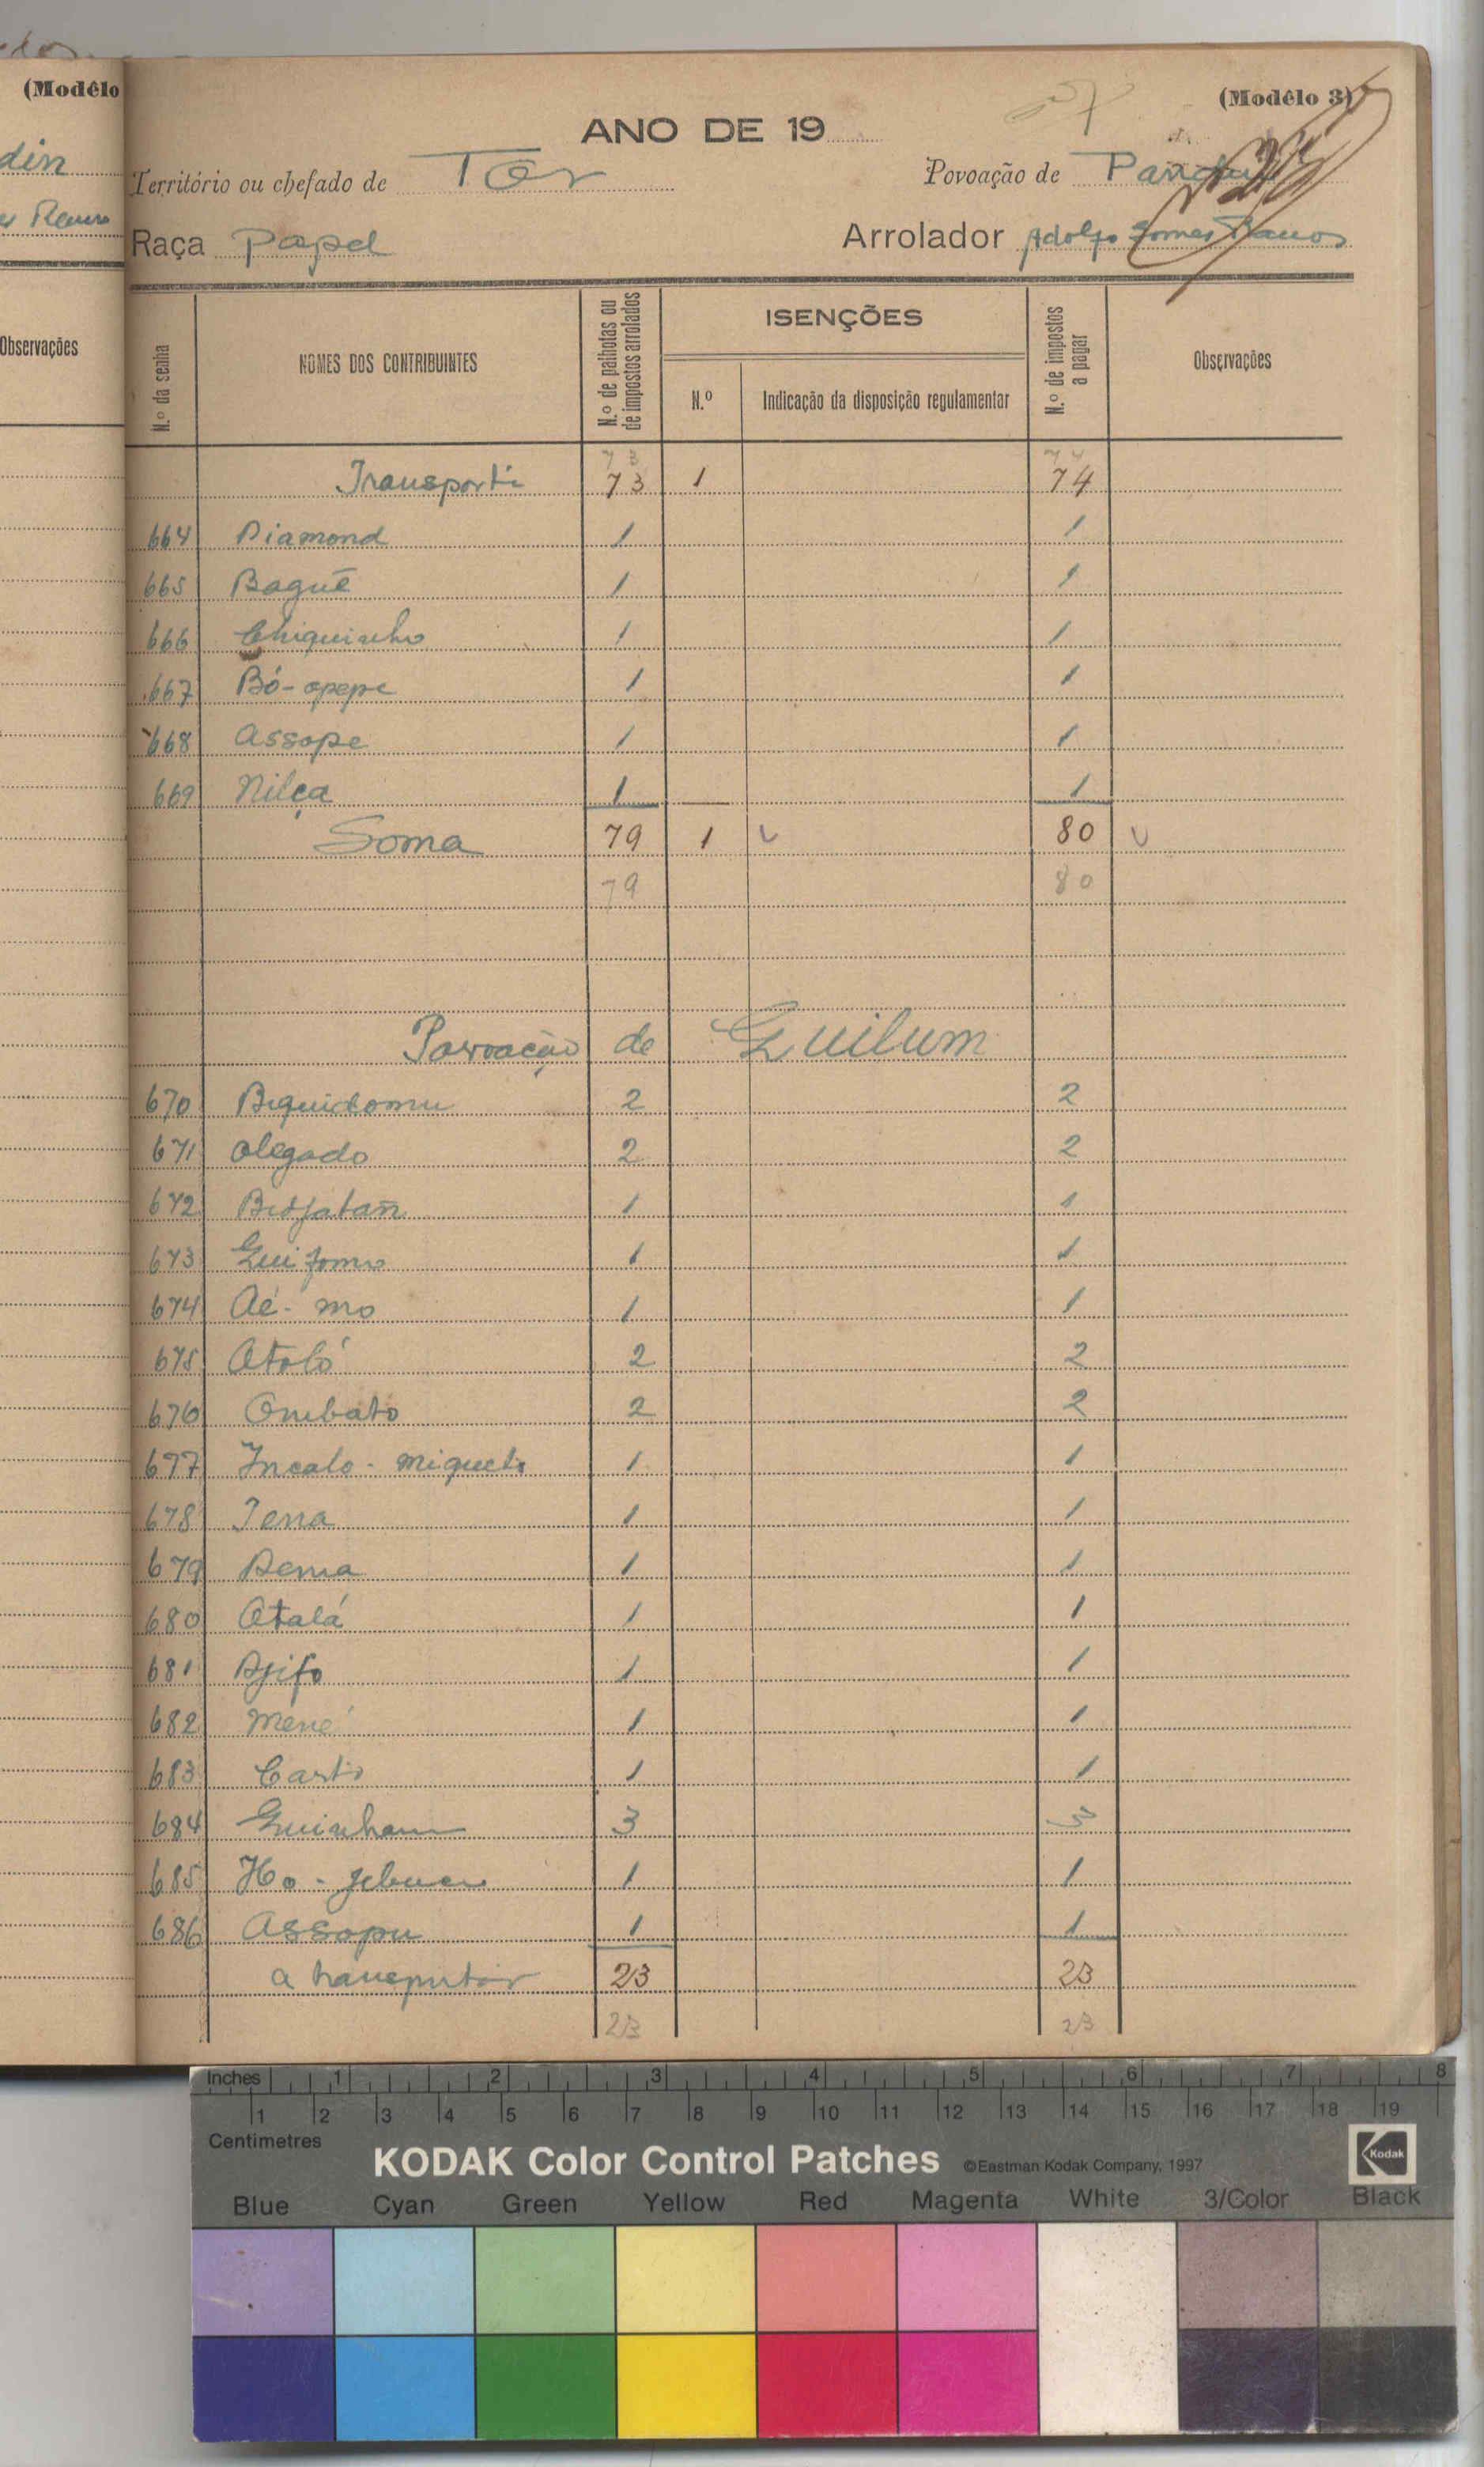 (Modêlo
din
Observações
(Modêlo 3)
ANO DE 19
Território ou chefado de Tor Povoação de
Raça Papel Arrolador Adolfo Gomes Ramos
N.º da senha NOMES DOS CONTRIBUINTES N.º de palhotas ou de impostos arrolados ISENÇÕES N.º Indicação da disposição regulamentar N.º de impostos a pagar Observações
73 74
Transporte 73 1 74
664 Diamond 1 1
665 Baguê 1 1
666 Chiquinho 1 1
667 Bó-opepe 1 1
668 Assope 1 1
669 Nilça 1 1
Soma 79 1 80
79 80
Povoação de Guilum
670 2 2
671 Alegado 2 2
672 1 1
673 1 1
674 Aé-mo 1 1
675 Atoló 2 2
676 Ombato 2 2
677 Incalo-miquele 1 1
678 1 1
679 1 1
680 Atalá 1 1
681 Djifo 1 1
682 Mené 1 1
683 1 1
684 Guinham 3 3
685 1 1
686 Assopu 1 1
a transportar 23 23
23 23
Inches 1 2 3 4 5 6 7 8
1 2 3 4 5 6 7 8 9 10 11 12 13 14 15 16 17 18 19
Centimetres
KODAK Color Control Patches ©Eastman Kodak Company, 1997 Kodak
Blue Cyan Green Yellow Red Magenta White 3/Color Black